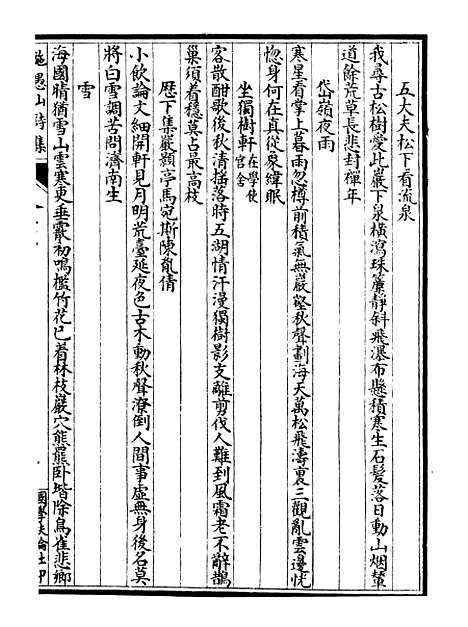 五大夫松下看流泉
我尋古松樹愛此巖下泉橫瀉珠簾靜斜飛瀑布懸積寒生石髮落日動山烟輦
道餘荒草長悲封禪年
岱嶺夜雨
寒星看掌上暮雨忽樽前積氣無巖壑秋聲劃海天萬松飛濤裏三觀亂雲邊恍
惚身何在真從象緯眠
坐獨樹軒在學使官舍
客散酣歌後秋清搖落時五湖情汗漫獨樹影支離剪伐人難到風霜老不辭鵲
巢須着穩莫占最高枝
歷下集巖顥亭馬宛斯陳虬倩
小飲論文細開軒見月明荒臺延夜色古木動秋聲潦倒人間事虛無身後名莫
將白雪調苦問濟南生
雪
海國晴猶雪山雲寒更垂霰初鳴檻竹花已着林枝巖穴熊羆臥堦除鳥雀悲鄉
施愚山詩集
國學扶輪社印